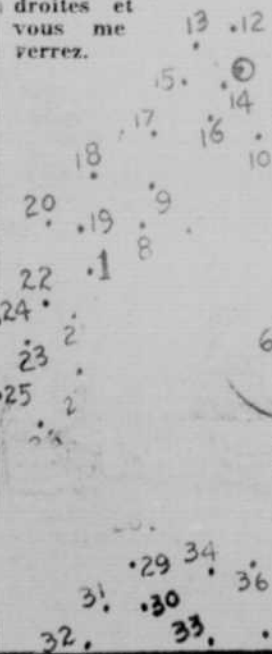 droites et
vous me
verrez.
13 12
15
14
17 16
18 10
20 9
19
8
1
22
24 2
6
23
25 2
29 34
36
31 30
32 33